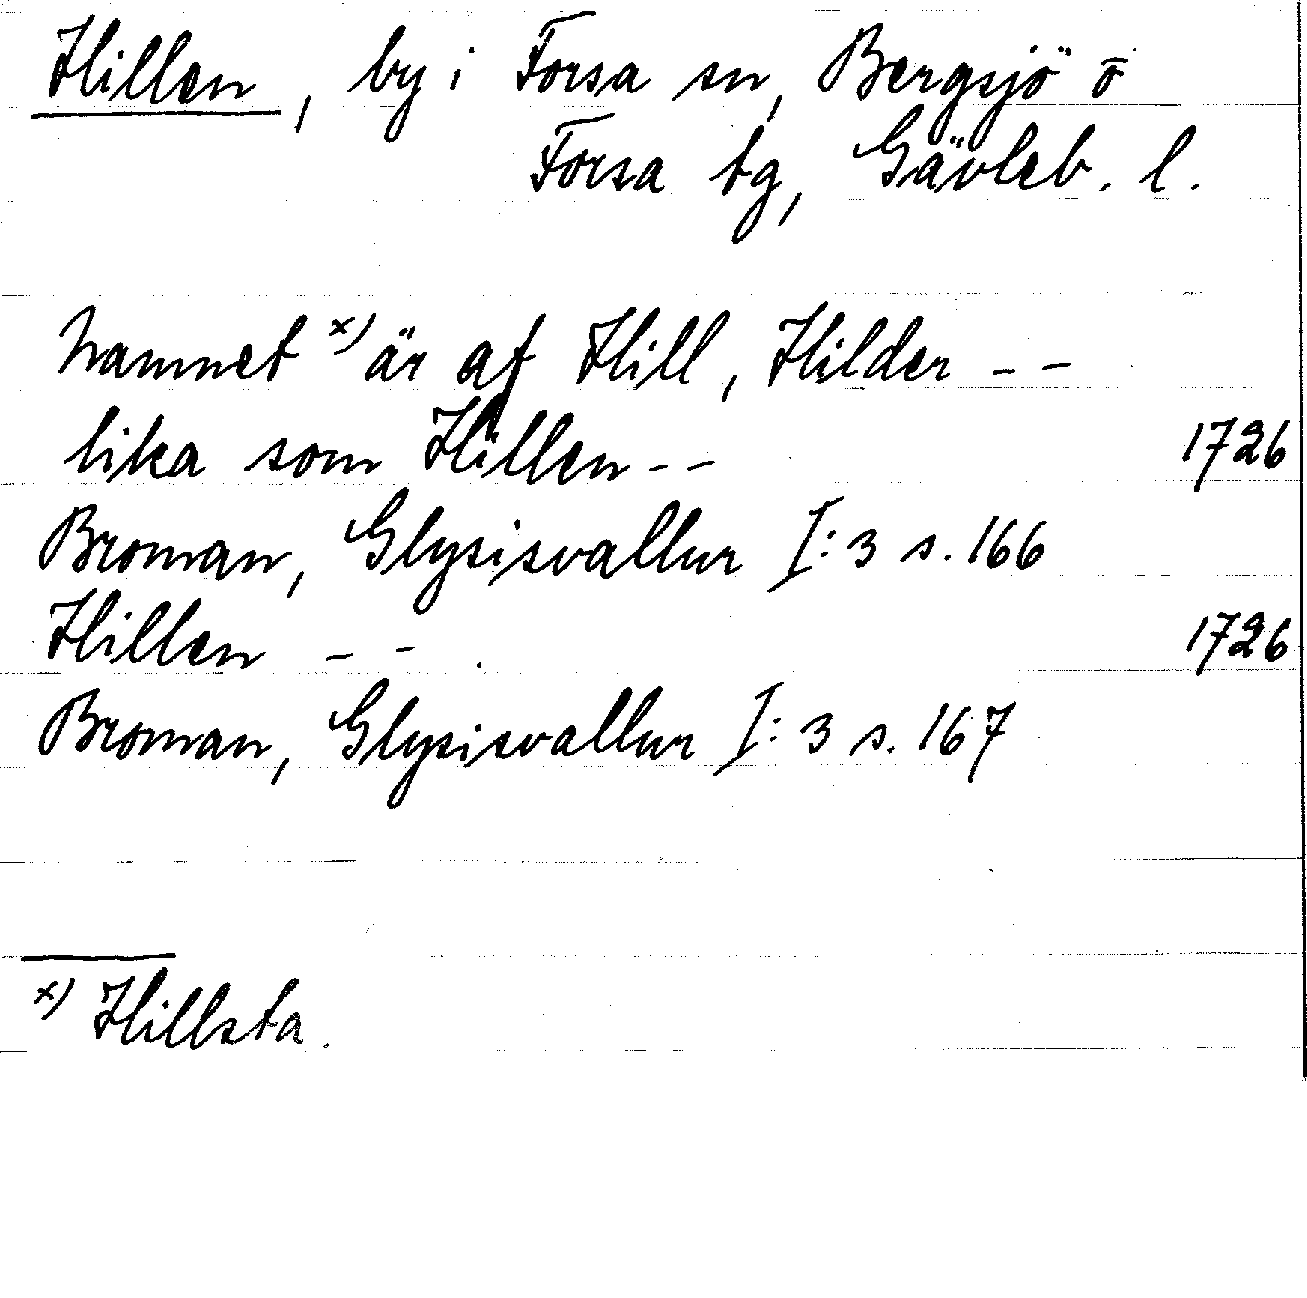 Hillen, by i Forsa sn, Bergsjö o
Forsa tg, Gävleb. l.
Namnet x) är af Hill, Hilder - -
lika som Hillen - - 1726
Broman, Glysisvallur I:3 s. 166
Hillen - - . 1726
Broman, Glysisvallur I:3 s. 167
x) Hillsta.